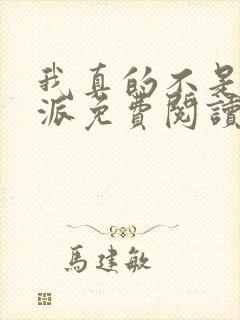 我真的不是
派免費閱讀
馬建敏